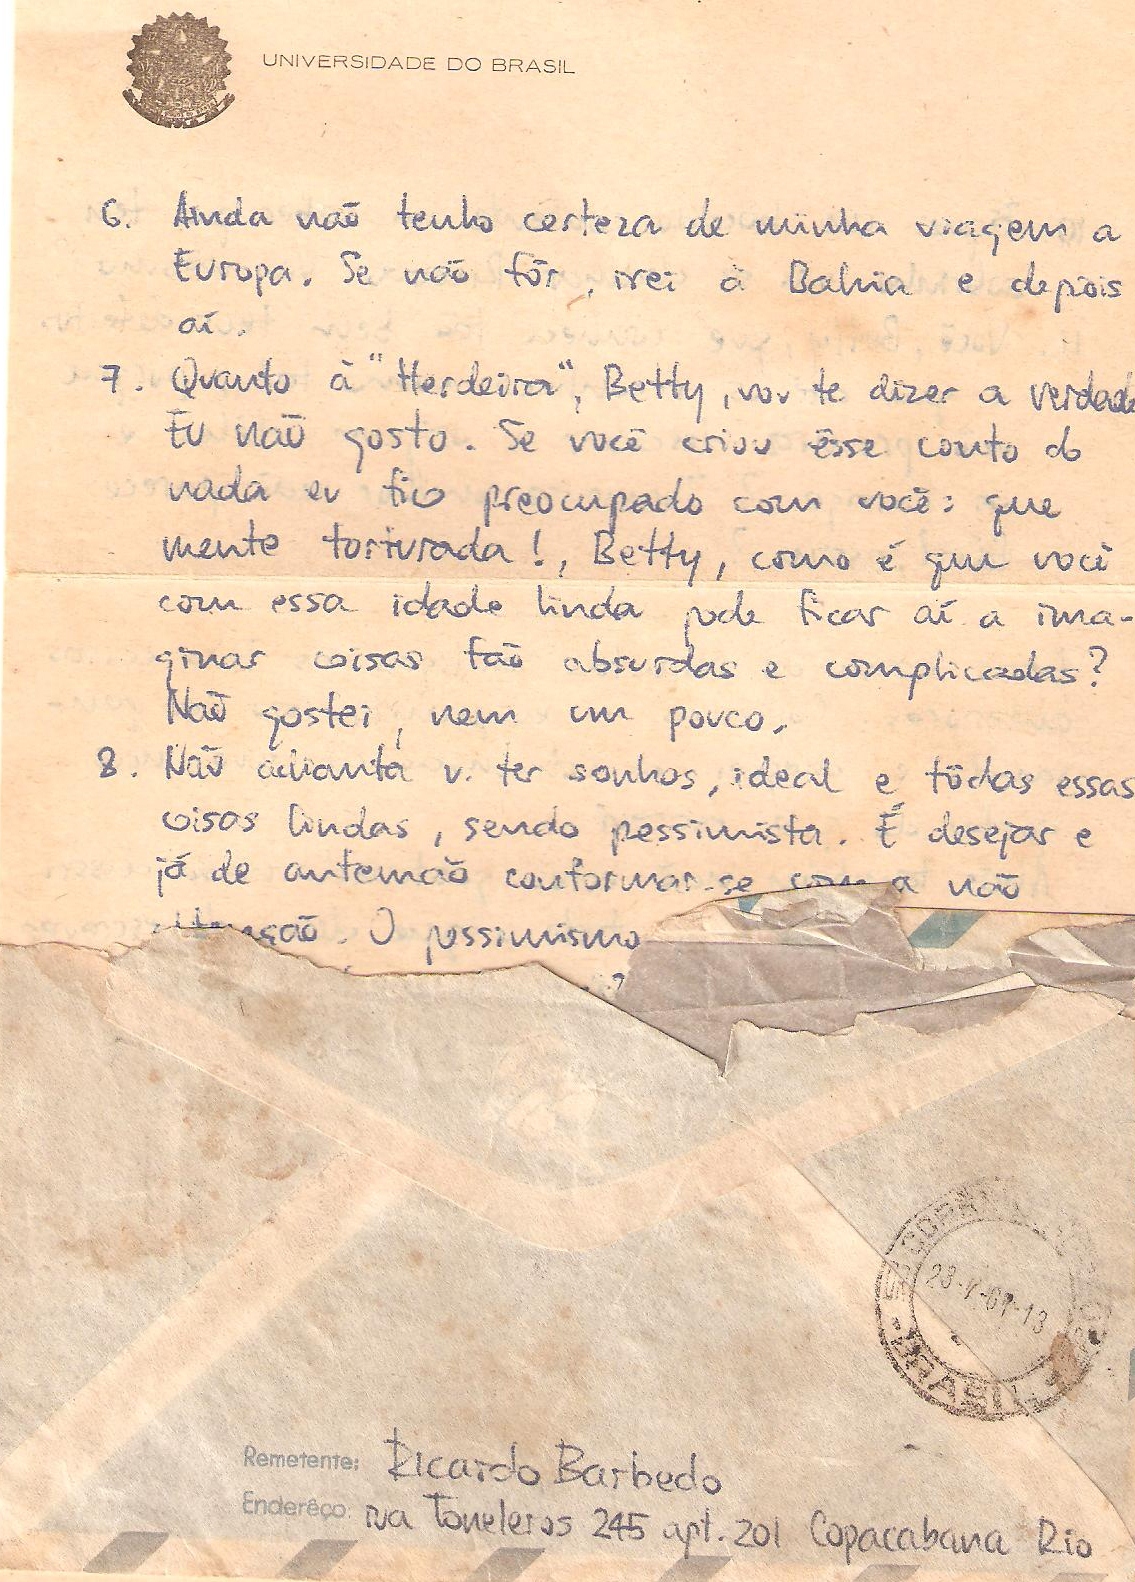 UNIVERSIDADE DO BRASIL
6. Ainda não tenho certeza de minha viagem a
Europa. Se não fôr, irei à Bahia e depois
aí.
7. Quanto à "Herdeira", Betty, vou te dizer a verdade
Eu não gosto. Se você criou êsse conto do
nada eu fico preocupado com você: que
mente torturada!, Betty, como é que você
com essa idade linda pode ficar aí a ima-
ginar coisas tão absurdas e complicadas?
Não gostei, nem um pouco.
8. Não adianta v. ter sonhos, ideal e tôdas essas
coisas lindas, sendo pessimista. É desejar e
já de antemão conformar-se com a não
O pessimismo
BRASIL
Remetente: Ricardo Barbedo
Enderêço: rua Toneleros 245 apt. 201 Copacabana Rio